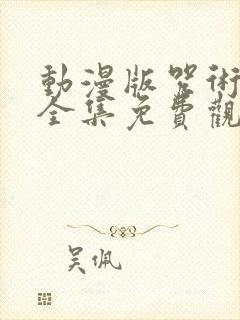 動漫版咒術
全集免費觀
吴佩